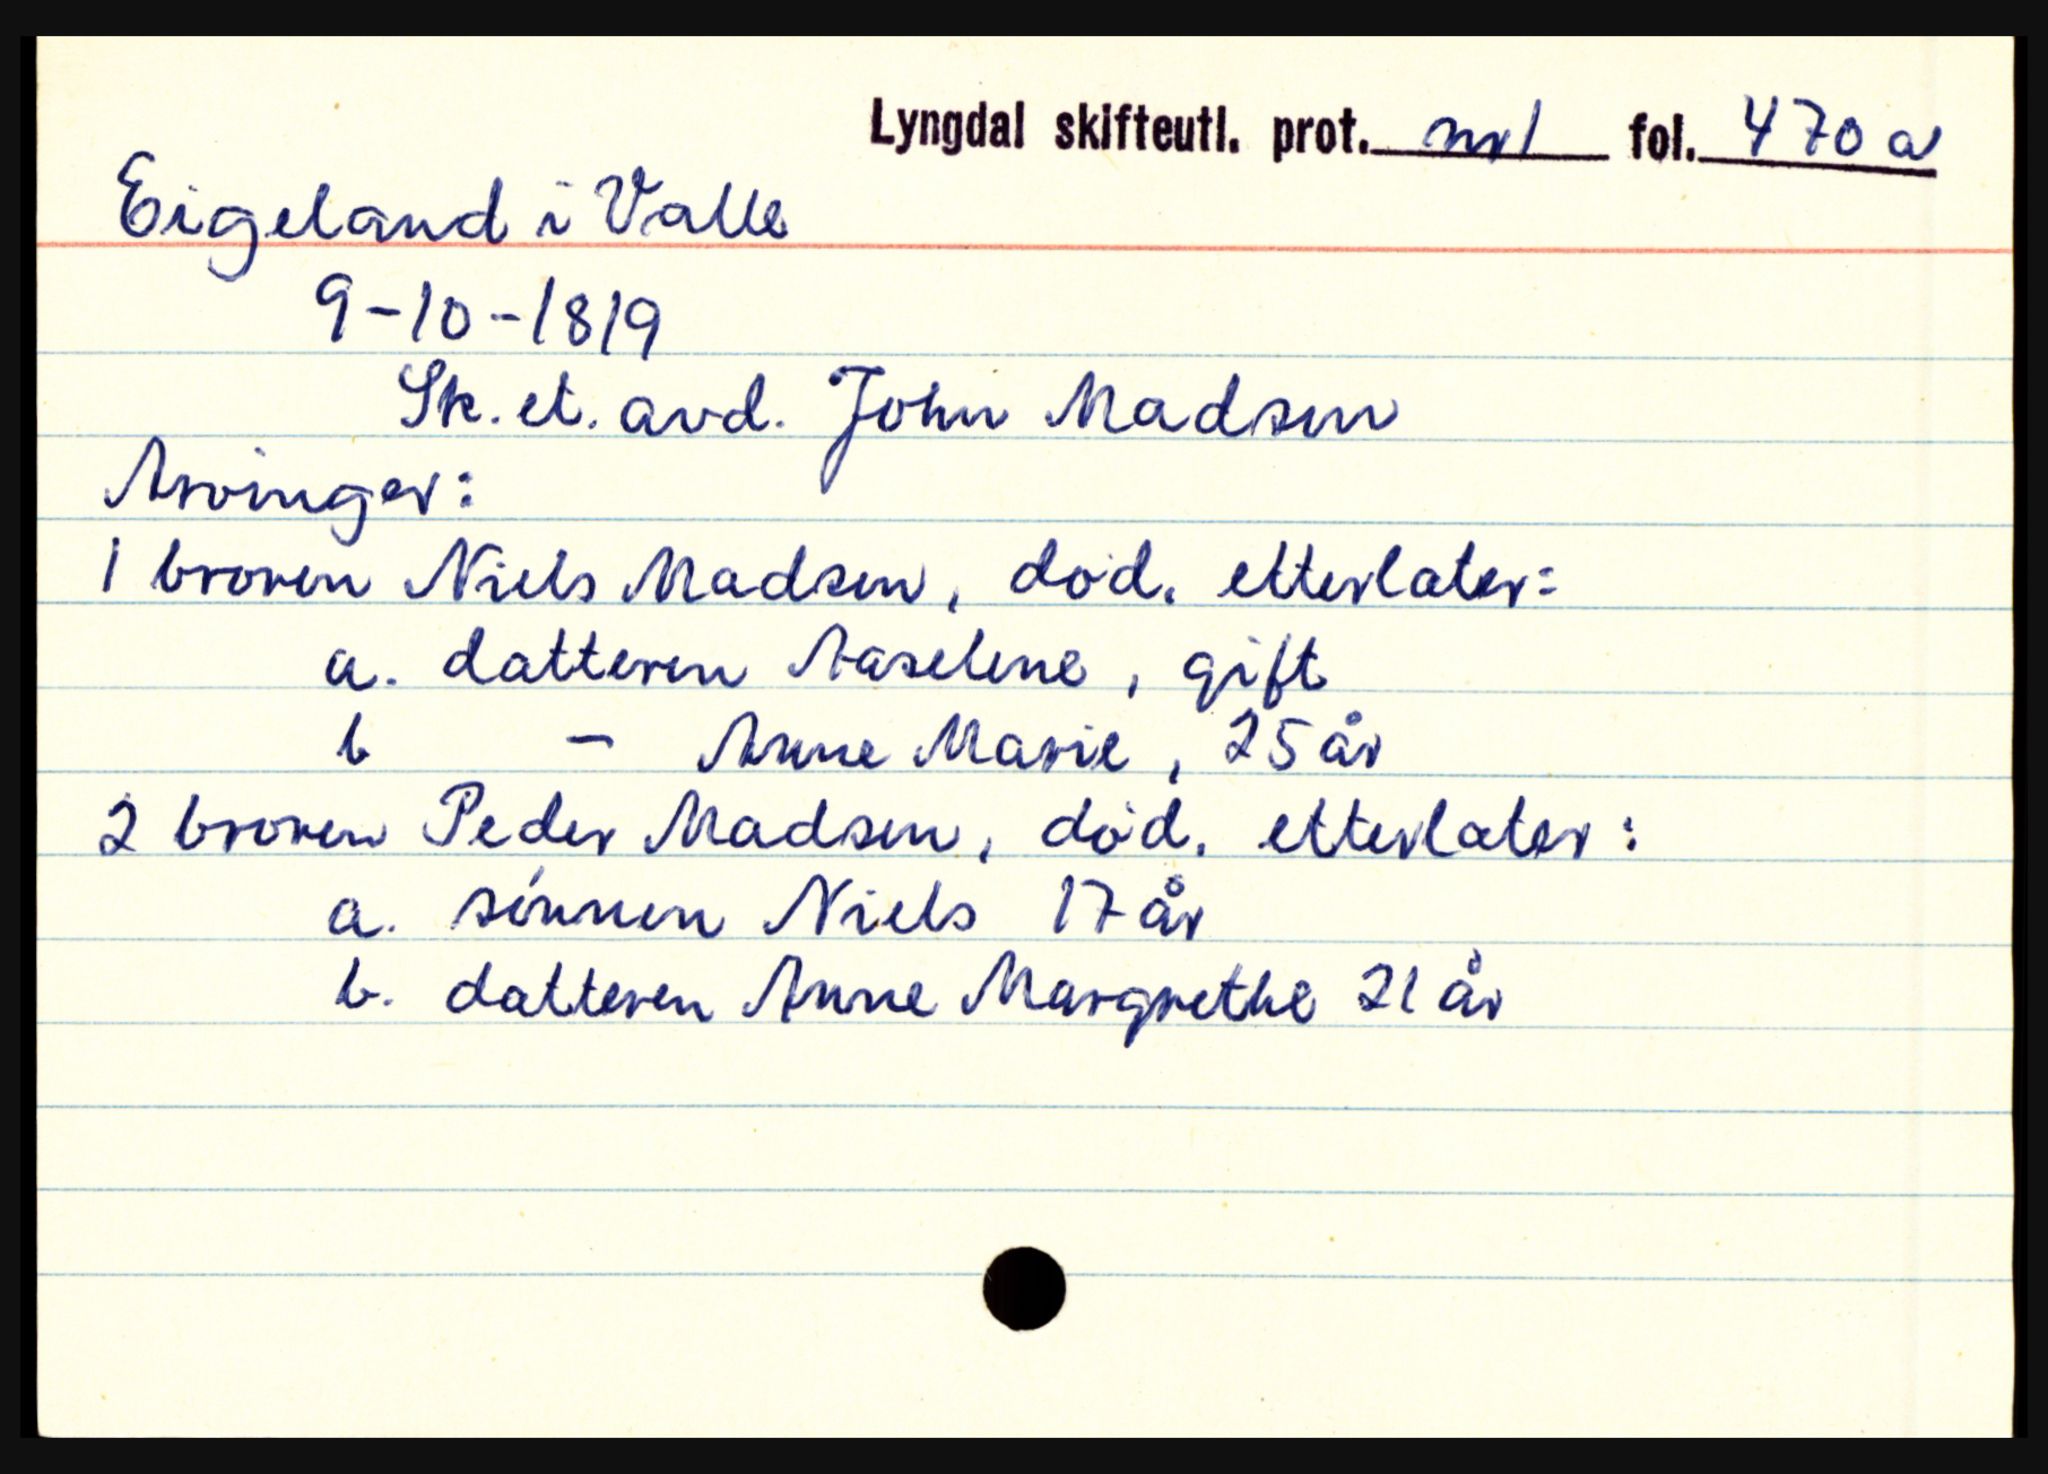 Lyngdal skifteutl. prot. nr 1 fol. 470 a
Eigeland i Valle
9-10-1819
Sk. et. avd. John Madsen
Arvinger:
1 broren Niels Madsen, død. etterlater:
a. datteren Aaselene, gift
b - Anne Marie, 25 år
2 broren Peder Madsen, død. etterlater:
a. sønnen Niels 17 år
b. datteren Anne Margrethe 21 år